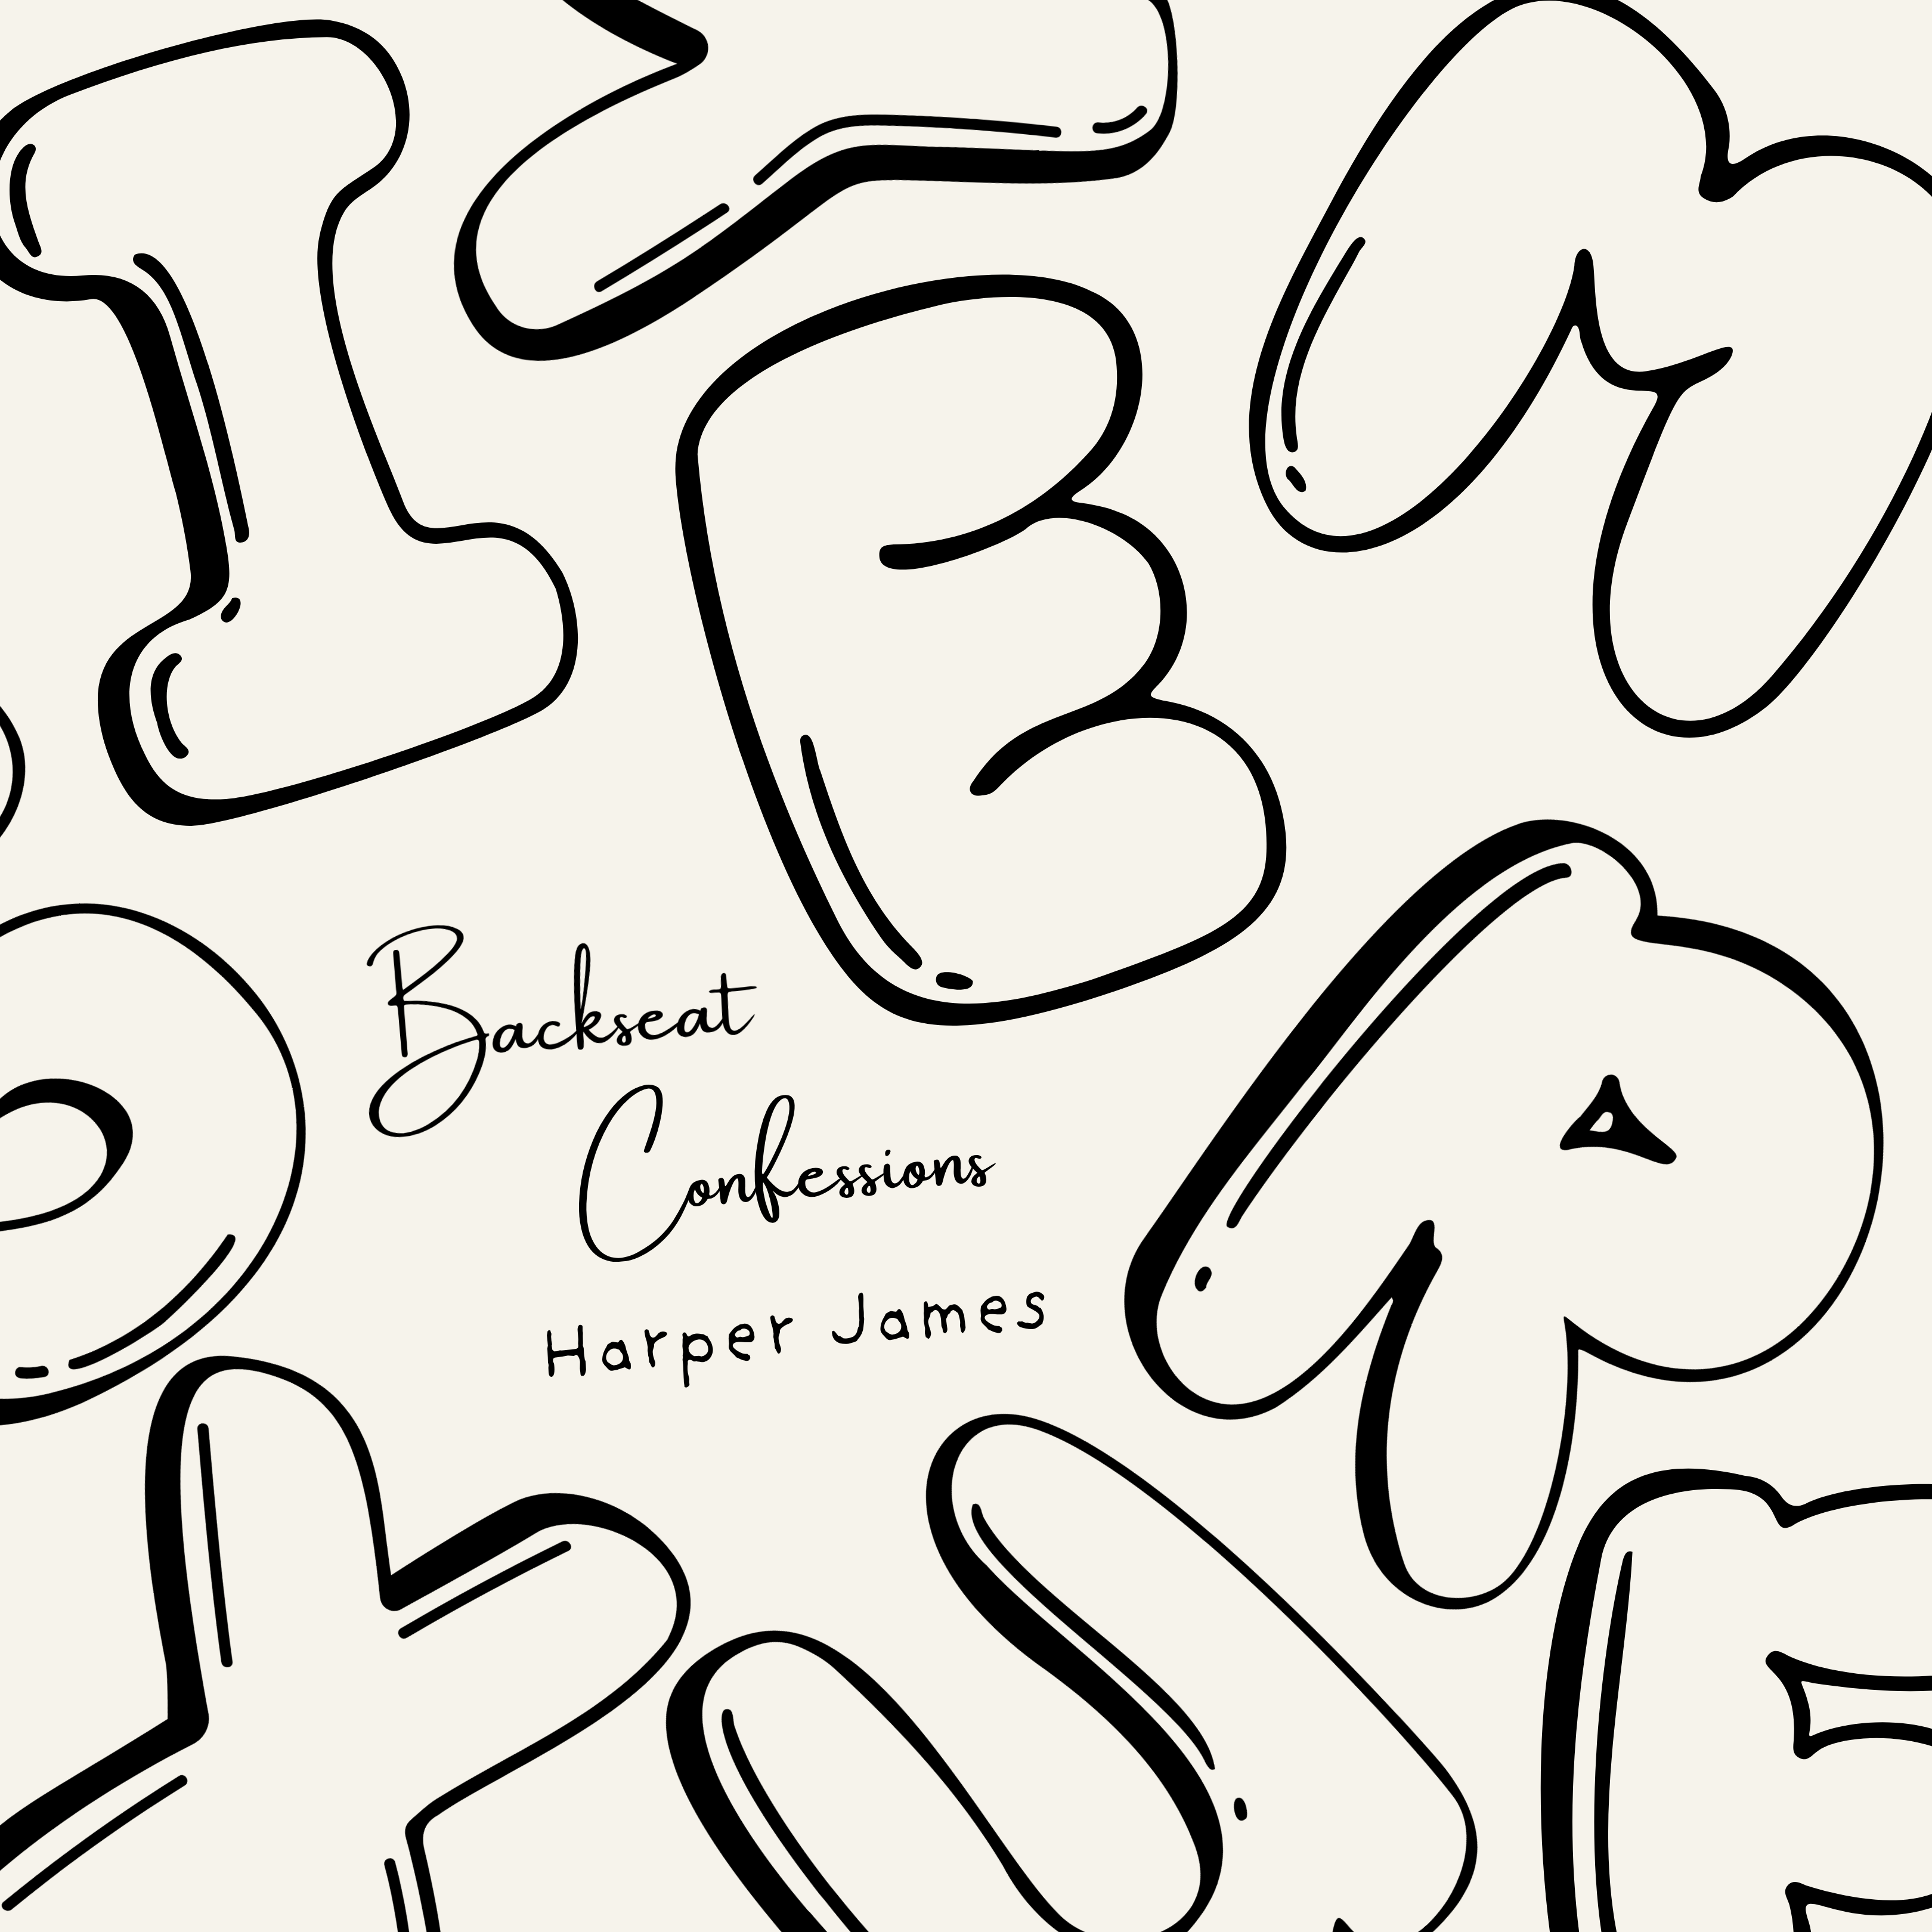 Backseat
Confessions
Harper James